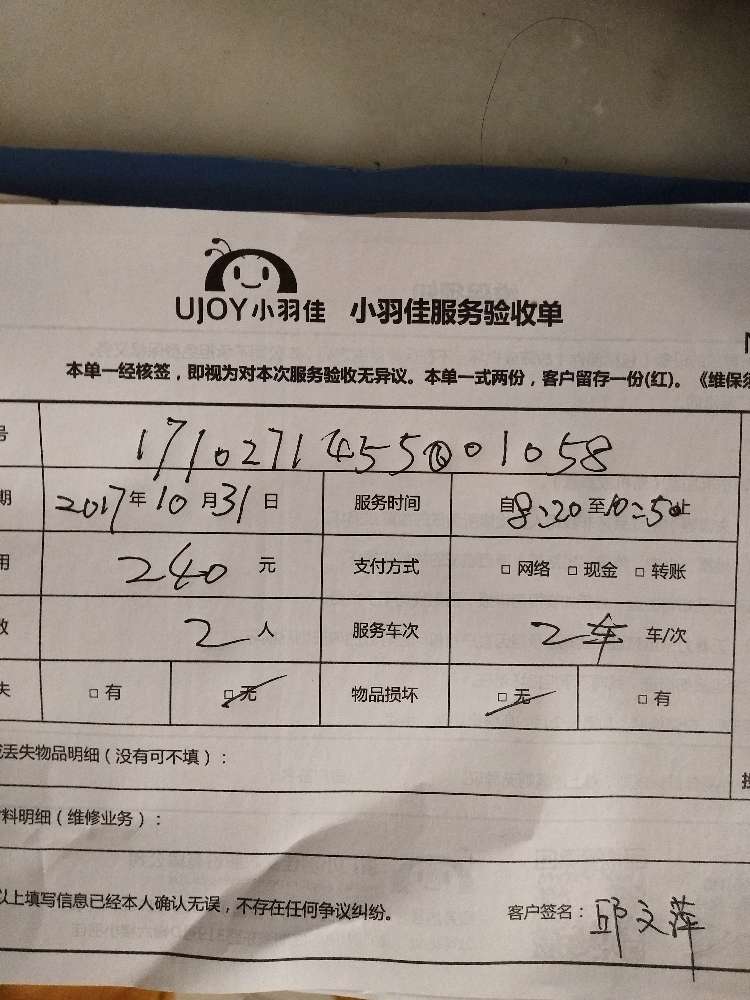 UJOY小羽佳 小羽佳服务验收单
本单一经核签，即视为对本次服务验收无异议。本单一式两份，客户留存一份(红)。《维保须
号 1710271455001058
期 2017年10月31日 服务时间 自8:20至10:50止
用 240元 支付方式 □网络 □现金 □转账
数 2人 服务车次 2车 车/次
失 □有 □无 物品损坏 □无 □有
丢失物品明细（没有可不填）：
料明细（维修业务）：
以上填写信息已经本人确认无误，不存在任何争议纠纷。 客户签名：邱文萍